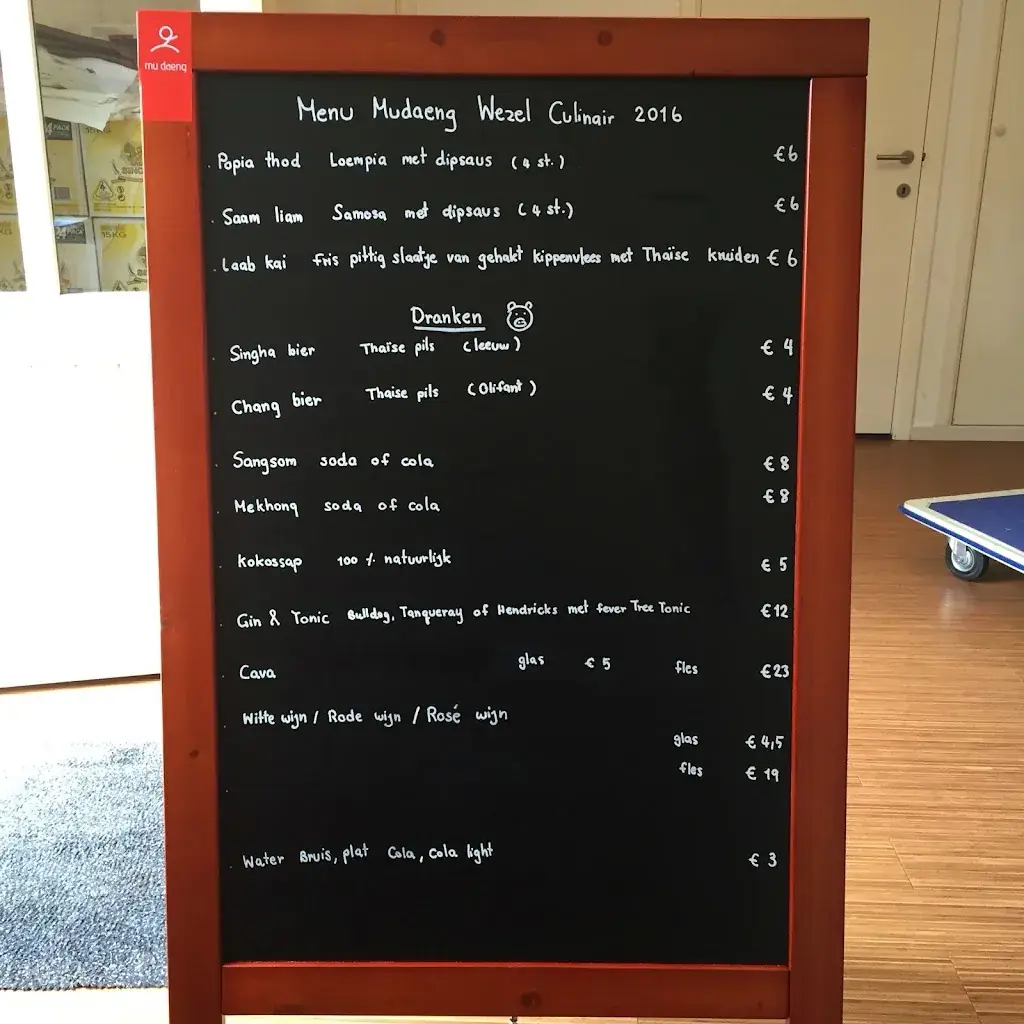 mu daeng
Menu Mudaeng Wezel Culinair 2016
Popia thod Loempia met dipsaus (4 st.) €6
Saam liam Samosa met dipsaus (4 st.) €6
Laab kai Fris pittig slaatje van gehakt kippenvlees met Thaïse kruiden €6
Dranken
Singha bier Thaïse pils (leeuw) €4
Chang bier Thaise pils (Olifant) €4
Sangsom soda of cola €8
Mekhong soda of cola €8
Kokossap 100 % natuurlijk €5
Gin & Tonic Bulldog, Tanqueray of Hendricks met fever Tree Tonic €12
Cava glas €5 fles €23
Witte wijn / Rode wijn / Rosé wijn
glas €4,5
fles €19
Water Bruis, plat Cola, Cola light €3
15KG